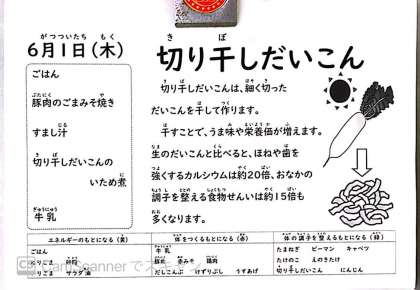 6月1日(木)
ごはん
豚肉のごまみそ焼き
すまし汁
切り干しだいこんの
いため煮
牛乳
切り干しだいこん
切り干しだいこんは、細く切った
だいこんを干して作ります。
干すことで、うま味や栄養価が増えます。
生のだいこんと比べると、ほねや歯を
強くするカルシウムは約20倍、おなかの
調子を整える食物せんいは約15倍も
多くなります。
エネルギーのもとになる(黄)
体をつくるもとになる(赤)
体の調子を整えるもとになる(緑)
ごはん
牛乳
たまねぎ ピーマン キャベツ
豚肉 赤みそ 鶏肉
たけのこ えのきたけ
サラダ油
だしこんぶ けずりぶし うすあげ
切り干しだいこん にんじん
CS CamScannerでスキャン